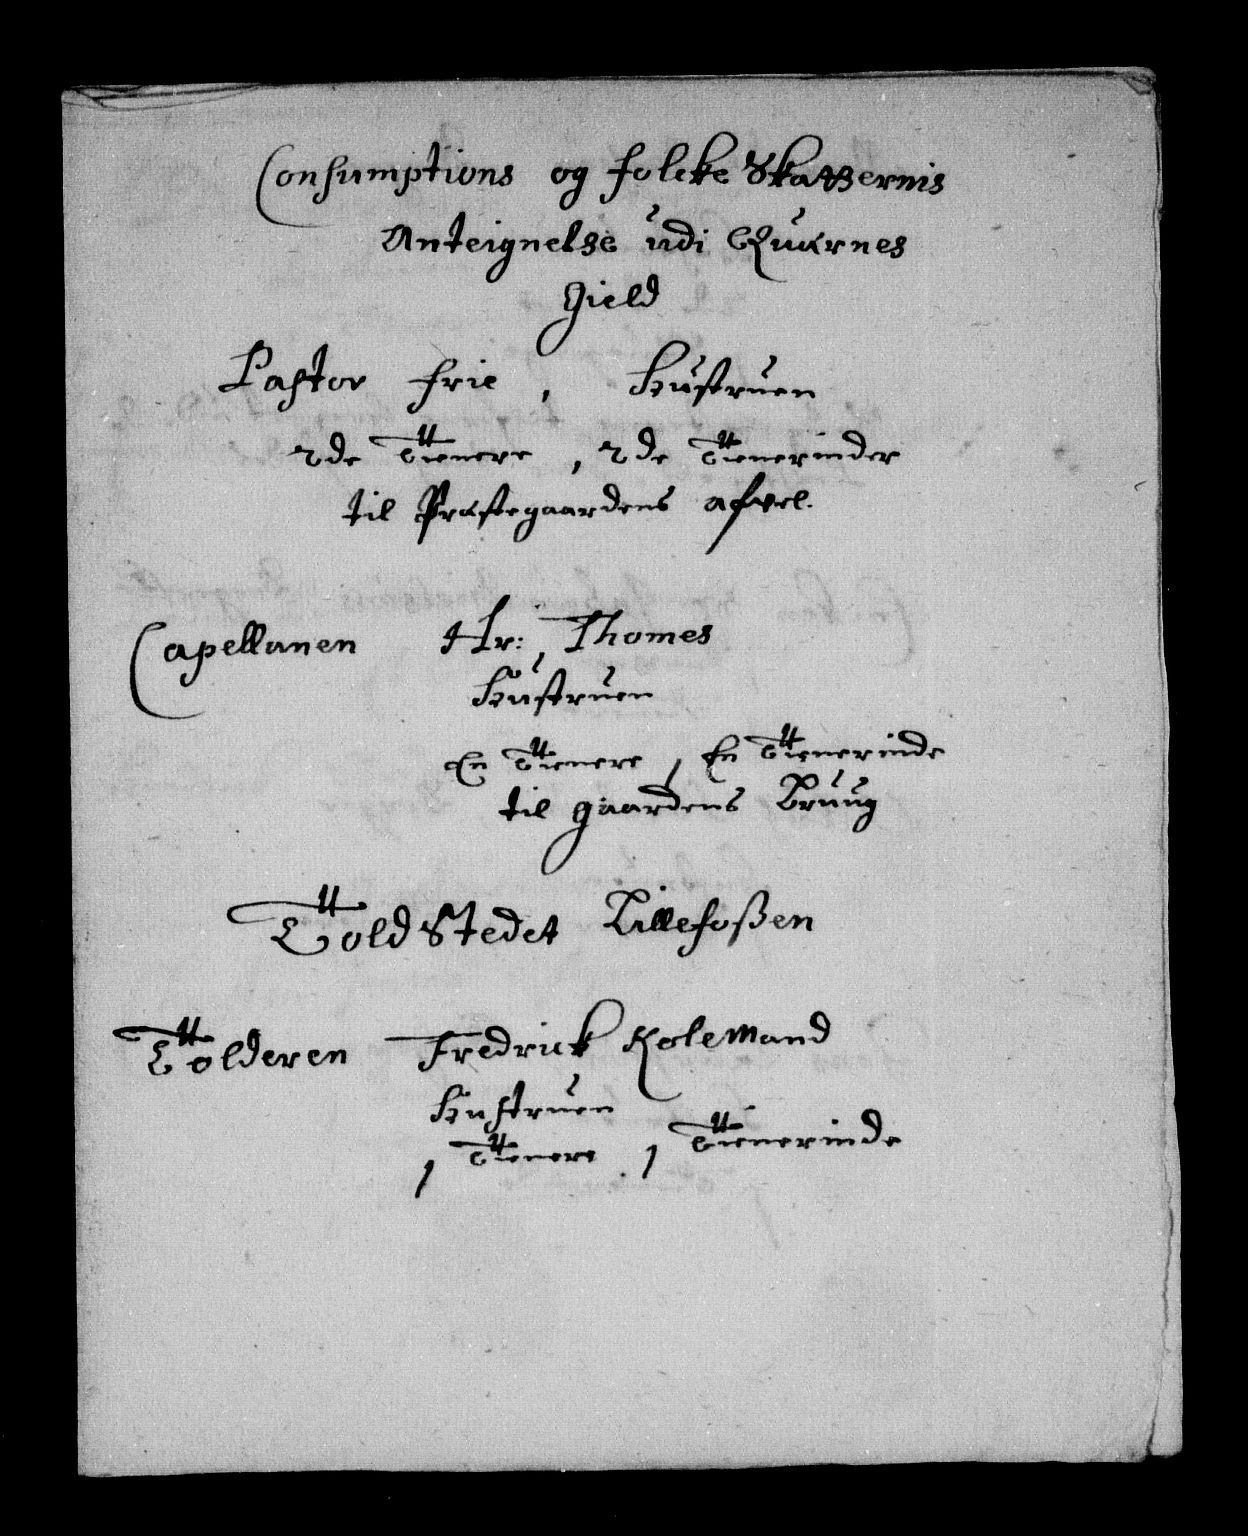 Consumptions og folcke Skatternis
Anteignelse udi Quærnes
Gield
Pastor frie, Hustruen
2de Tienere, 2de Tienerinder
til Præstegaardens afvel.
Capellanen Hr: Thomes
Hustruen
En Tienere, En Tienerinde
til gaardens Bruug
Told Stedet Lillefoßen
Tolderen Fredrick Kolemand
Hustruen
1 Tienere. 1 Tienerinde